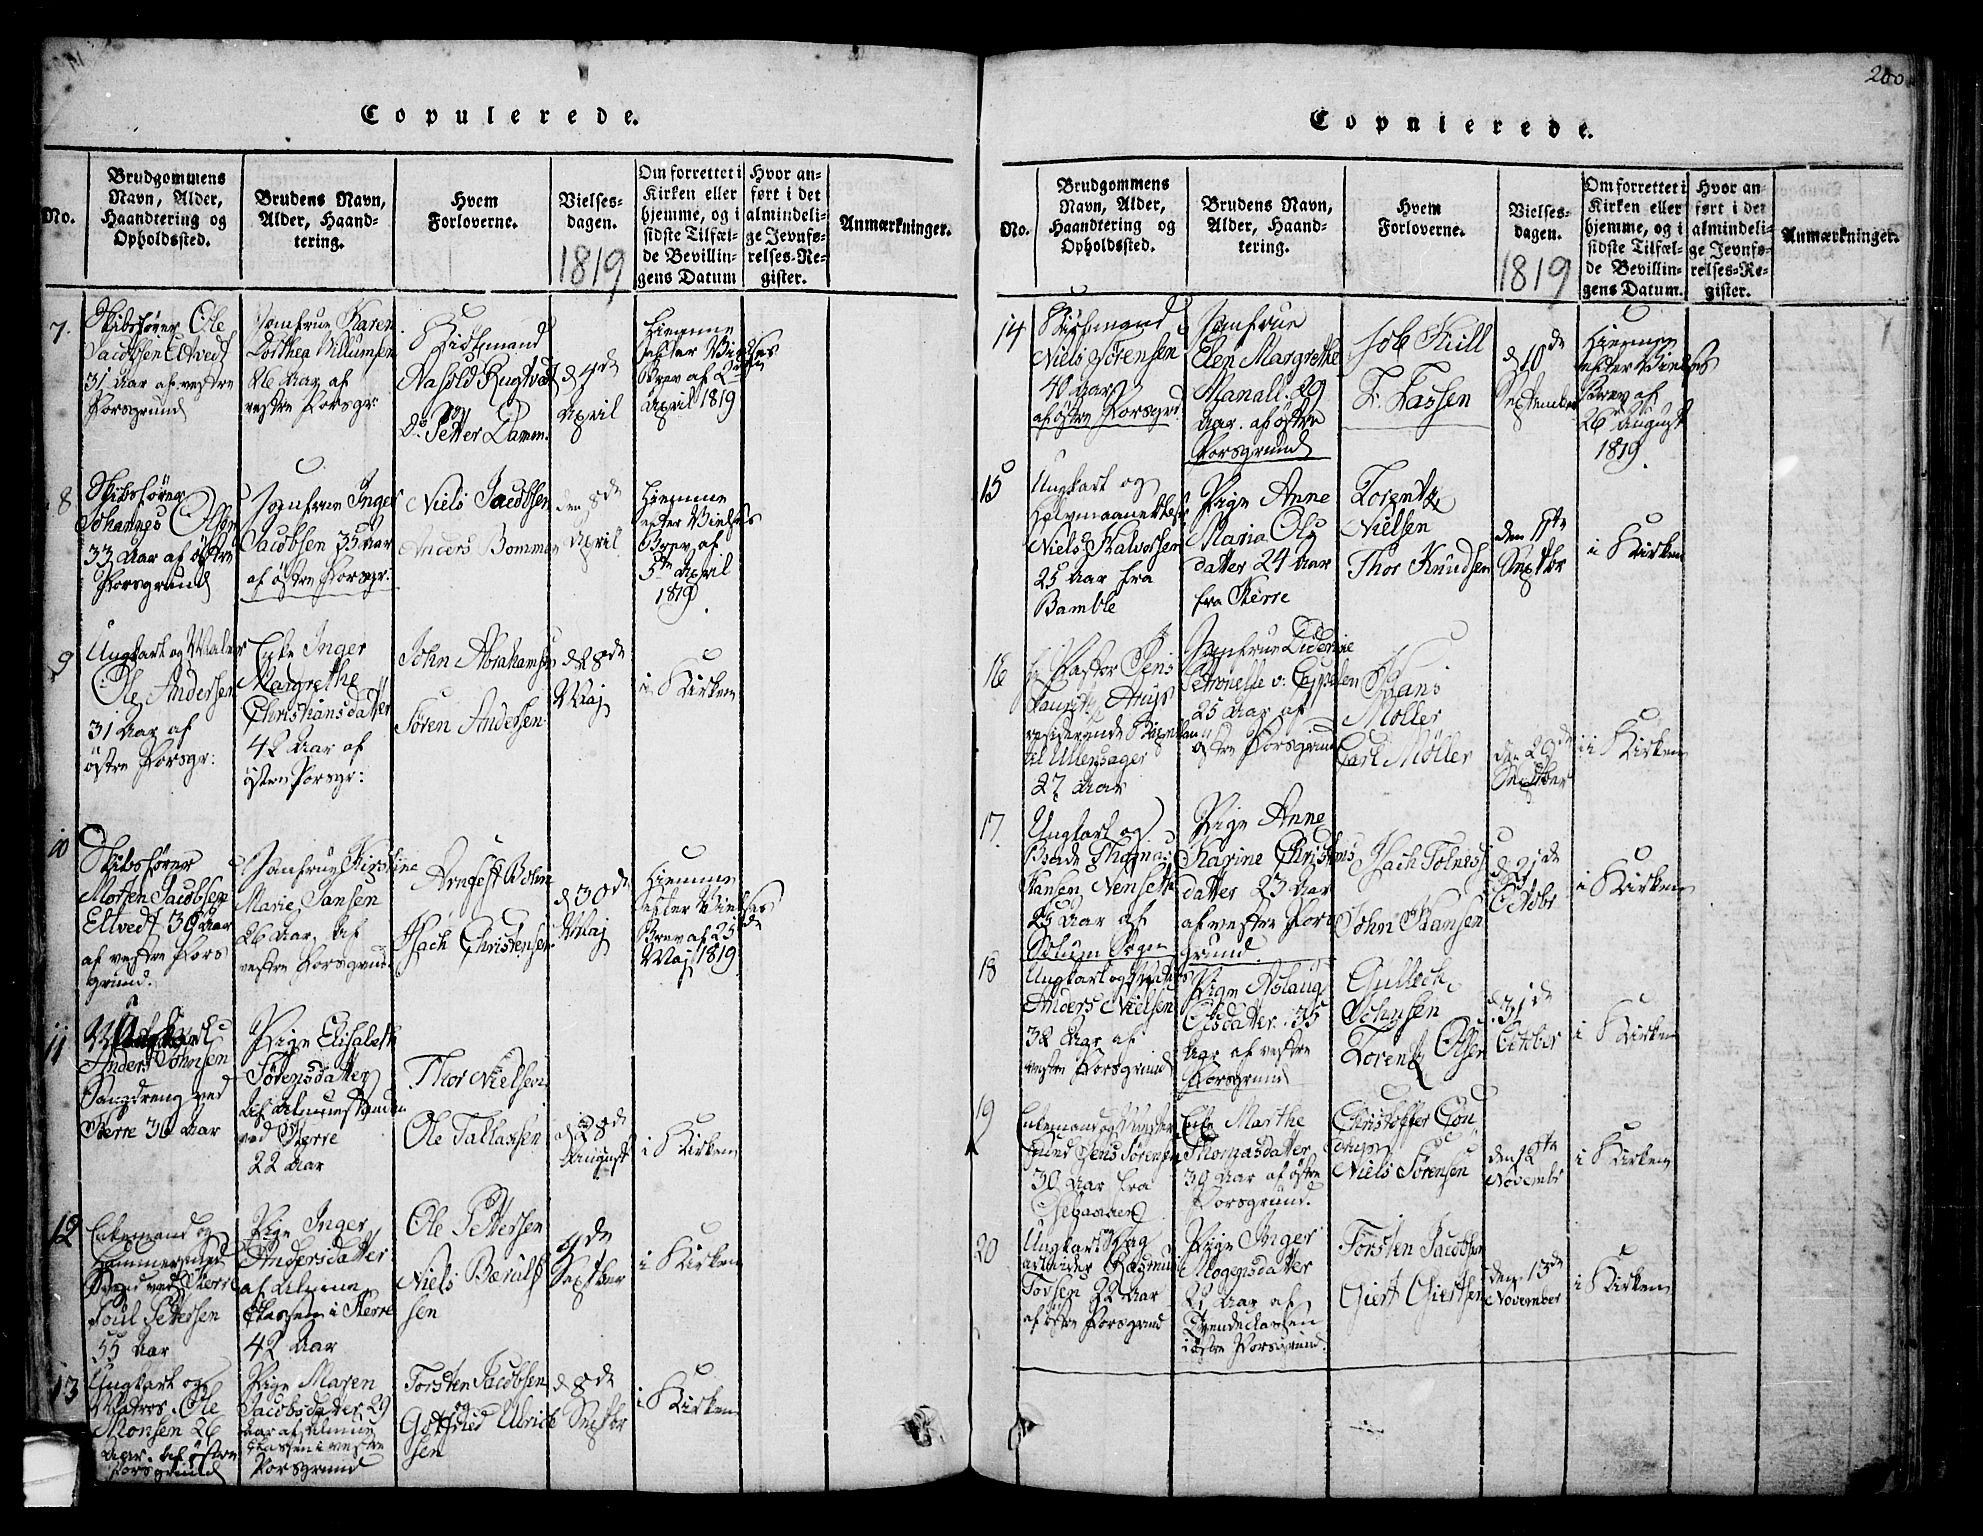 Copulerede.
No.
Brudgommens
Navn, Alder,
Haandtering og
Opholdssted.
Brudens Navn,
Alder, Haand-
tering.
Hvem
Forloverne.
Vielses-
dagen.
1819
Om forrettet i
Kirken eller
hjemme, og i
sidste Tilfæl-
de Bevillin-
gens Datum
Hvor an-
ført i det
almindeli-
ge Jevnfø-
relses-Re-
gister.
Anmærkninger.
7.
Skibsfører Ole
Jacobsen Eltvedt
31 Aar af vestre
Porsgrund
Jomfrue Karen
Dorthea Willumsen
26 Aar af
vestre Porsgr:
Kiøbmand
Rugtvedt
do. Petter Damm.
d 4de
April
Hiemme
efter Vielses
Brev af 2den
April 1819
8
Skibsfører
Johannes Olsen
33 Aar af østre
Porsgrund
Jomfrue Inger
Jacobsen 35 Aar
af østre Porsgr:
Niels Jacobsen
Anders Bomman
den 8de
April
Hiemme
efter Vielses
Brev af
5te April
1819
9
Ungkarl og
Ole Andersen
31 Aar af
østre Porsgr:
Enke Inger
Margrethe
Christiansdatter
42 Aar af
østre Porsgr:
John Abrahamsen
Søren Andersen
d 28de
Maj
i Kirken
10
Skibsfører
Morten Jacobsen
Eltvedt 36 Aar
af vestre Pors
grund.
Jomfrue Kirstine
Marie Jansen
26 Aar, af
vestre Porsgrund
Arngest Bohn
Isach Christensen
d 30de
Maj
Hiemme
efter Vielses
Brev af 25de
Maj 1819
11
Anders Johnsen
ved
Herre 30 Aar
Pige Elisabeth
Sørensdatter
af Almuestanden
ved Herre
22 Aar
Thor Nielsen
Ole Tallaksen
d 28de
August
i Kirken
12
Enkemand og
Hammersmed
ved Herre
Poul Pettersen
55 Aar
Pige Inger
Andersdatter
af Almue
Classen i Herre
42 Aar
Ole Pettersen
Niels Bærulf
sen
9de
Septber
i Kirken
13
Ungkarl og
Matros Ole
Monsen 26
Aar. af østre
Porsgrund
Pige Maren
Jacobsdatter 29
Aar af Almue
Classen i vestre
Porsgrund
Torsten Jacobsen
og
Gotfried Ulrich
sen
d 8de
Septbr
i Kirken
200
Copulerede.
No.
Brudgommens
Navn, Alder,
Haandtering og
Opholdssted.
Brudens Navn,
Alder, Haand-
tering.
Hvem
Forloverne.
Vielses-
dagen.
1819
Om forrettet i
Kirken eller
hjemme, og i
sidste Tilfæl-
de Bevillin-
gens Datum.
Hvor an-
ført i det
almindeli-
ge Jevnfø-
relses-Re-
gister.
Anmærkninger.
14
Kiøbmand
Niels Sørensen
40 Aar
af østre Porsgrd
Jomfrue
Elen Margrethe
29
Aar. af østre
Porsgrund
d 10de
September
Hiemme
efter Vielses
Brev af
26 August
1819.
15
Ungkarl og
Niels Halvorsen
25 Aar fra
Bamble
Pige Anne
Maria Ols
datter 24 Aar
fra Herre
Lorentz
Nielsen
Thor Knudsen
den 11te
Septbr
i Kirken
16
Hr Pastor Jens
Lauritz Arup
residerende Capelan
til Ullensager
27 Aar
Jomfrue
Petronelle v: Cappelen
25 Aar af
østre Porsgrund
Hans
Møller
Carl Møller
den 29de
Septber
i Kirken
17.
Ungkarl og
Thomas
Hansen Nenseth
25 Aar af
Solum Sogn
Pige Anne
Karine Christens
datter 23 Aar
af vestre Pors
grund.
Isach Tolness
John Hansen
d 21de
Octobr
i Kirken
18
Ungkarl og
Anders Nielsen
32 Aar af
vestre Porsgrund
Pige Aslaug
datter. 35
Aar af vestre
Porsgrund
Gullech
Johnsen
Lorentz Olsen
d. 31de
October
i Kirken
19
Enkemand og
Jens Sørensen
30 Aar fra
Enke Marthe
Thomasdatter
39 Aar af østre
Porsgrund.
Christoffer
Niels Sørensen
den 12te
Novembr
i Kirken
20
Ungkarl og Dag
arbeider Rasmus
22 Aar
af østre Porsgrund
Pige Inger
Mogensdatter
21 Aar af
i østre Porsgrund.
Torsten Jacobsen
Giert Giertsen
den 13de
November
i Kirken